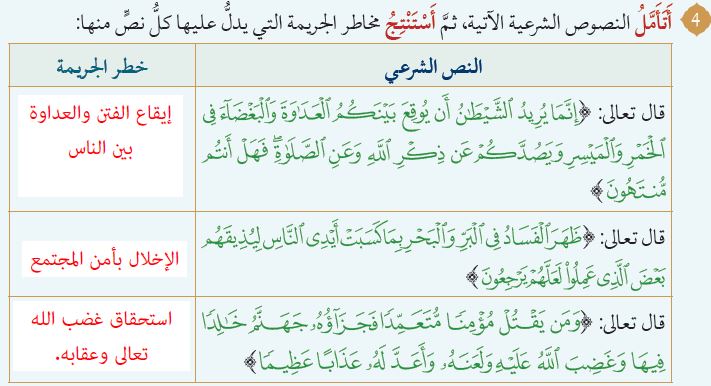 4 أَتَأَمَّلُ النصوص الشرعية الآتية، ثمَّ أَسْتَنْتِجُ مخاطر الجريمة التي يدلُّ عليها كلُّ نصٍّ منها:
النص الشرعي
خطر الجريمة
قال تعالى: ﴿إِنَّمَا يُرِيدُ ٱلشَّيْطَٰنُ أَن يُوقِعَ بَيْنَكُمُ ٱلْعَدَاوَةَ وَٱلْبَغْضَآءَ فِي
ٱلْخَمْرِ وَٱلْمَيْسِرِ وَيَصُدَّكُمْ عَن ذِكْرِ ٱللَّهِ وَعَنِ ٱلصَّلَوٰةِۖ فَهَلْ أَنتُم
مُّنتَهُونَ﴾
إيقاع الفتن والعداوة
بين الناس
قال تعالى: ﴿ظَهَرَ ٱلْفَسَادُ فِي ٱلْبَرِّ وَٱلْبَحْرِ بِمَا كَسَبَتْ أَيْدِى ٱلنَّاسِ لِيُذِيقَهُم
بَعْضَ ٱلَّذِى عَمِلُوا۟ لَعَلَّهُمْ يَرْجِعُونَ﴾
الإخلال بأمن المجتمع
قال تعالى: ﴿وَمَن يَقْتُلْ مُؤْمِنًا مُّتَعَمِّدًا فَجَزَآؤُهُۥ جَهَنَّمُ خَٰلِدًا
فِيهَا وَغَضِبَ ٱللَّهُ عَلَيْهِ وَلَعَنَهُۥ وَأَعَدَّ لَهُۥ عَذَابًا عَظِيمًا﴾
استحقاق غضب الله
تعالى وعقابه.